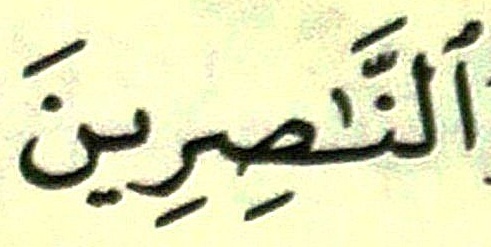 ٱلنَّـٰصِرِينَ